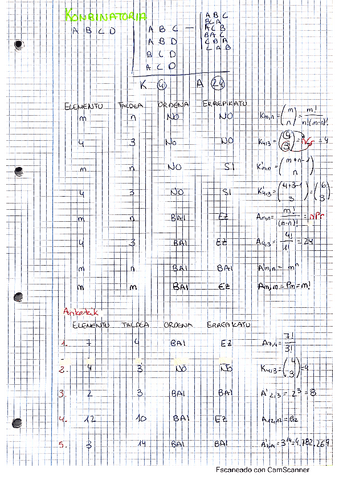 KONBINATORIA
A B C D
A B C — A B C
A B D
B C D
A C D
A C B
B A C
C B A
C A B
K 4 A 24
ELEMENTU TALDEA ORDENA ERREPIKATU
m n NO NO Km,n = (m n) = m! / n!(m-n)!
4 3 NO NO K4,3 = (4 3) = nCr = 4
m n NO SI K'm,n = (m+n-1 n)
4 3 NO SI K'4,3 = (4+3-1 3) = (6 3)
m n BAI EZ Am,n = m! / (m-n)! = nPr
4 3 BAI EZ A4,3 = 4! / 1! = 24
m n BAI BAI A'm,n = mⁿ
m m BAI EZ Am,m = Pm = m!
Ariketak
ELEMENTU TALDEA ORDENA ERREPIKATU
1. 7 4 BAI EZ A7,4 = 7! / 3!
2. 4 3 NO NO K4,3 = (4 3) = 4
3. 2 3 BAI BAI A'2,3 = 2³ = 8
4. 12 10 BAI EZ A12,10 =
5. 3 14 BAI BAI = 3¹⁴ = 4.782.969
Escaneado con CamScanner